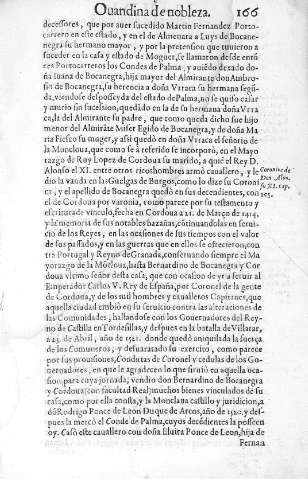 Ouandina de nobleza. 166
decessores, que por auer sucedido Martin Fernandez Porto-
carrero en este estado, y en el de Almenara a Luys de Bocane-
negra su hermano mayor, y por la pretension que tuuieron a
suceder en la casa y estado de Moguer, se llamaron desde enton
ces Portocarreros los Condes de Palma, y auiedo dexado do-
ña Iuana de Bocanegra, hija mayor del Almirante don Ambro-
sio de Bocanegra, su herencia a doña Vrraca su hermana segū-
da, viendose desposeyda del estado de Palma, no se quiso casar
y murio sin sucession, quedado en la de su hermana doña Vrra
ca, la del Almirante su padre, que como queda dicho fue hijo
menor del Almirāte Miser Egidio de Bocanegra, y de doña Ma
ria Fiesco su muger, y assi quedò en doña Vrraca el señorio de
la Monclova, que como se à referido se incorporò, en el Mayo
razgo de Roy Lopez de Cordoua su marido, a quiè el Rey D.
Alonso el XI. entre otros ricos hombres armò cauallero, y le
dio la vanda en las Guelgas de Burgos, como lo dize su Coroni
ca, y el apellido de Bocanegra quedò en sus decendientes, con
el de Cordoua por varonia, como parece por su testamento y
escritura de vinculo, fecha en Cordoua a 21. de Março de 1414.
y la memoria de sus notables hazañas, cōtinuandolas en serui-
cio de los Reyes, en las ocasiones de sus tiempos con el valor
de sus passados, y en las guerras que en ellos se ofrecieron, con
tra Portugal y Reyno de Granada, conseruando siempre el Ma
yorazgo de la Mōcloua, hasta Bernardino de Bocanegra y Cor
doua vltimo señor desta casa, que con ocasion de yr a seruir al
Emperador Carlos V. Rey de España, por Coronel de la gente
de Cordoua, y de los mil hombres y caualleros Capitanes, que
aquella ciudad embiò en su seruicio contra las alteraciones de
las Comunidades, hallandose con los Gouernadores del Rey-
no de Castilla en Tordesillas, y despues en la batalla de Villalar,
a 23. de Abril, año de 1521. donde quedò aniquilada la fuerça
de los Comuneros, y desuaratado su exercito, como parece
por sus prouisiones, Conductas de Coronel y cedulas de los Go-
uernadores, en que le agradecen lo que siruio en aquella oca-
sion, para cuya jornada, vendio don Bernardino de Bocanegra
y Cordoua (con facultad Real) muchos bienes vinculados de su
casa, como por ella consta, y la Monclaua castillo y juridicion, a
dō Rodrigo Ponce de Leon Duque de Arcos, año de 1520. y des-
pues la mercò el Conde de Palma, cuyos decēdientes la posseen
oy. Casò este cauallero con doña Eluira Ponce de Leon, hija de
Fernan
Coronica de
Don Alon.
so XI. cap.